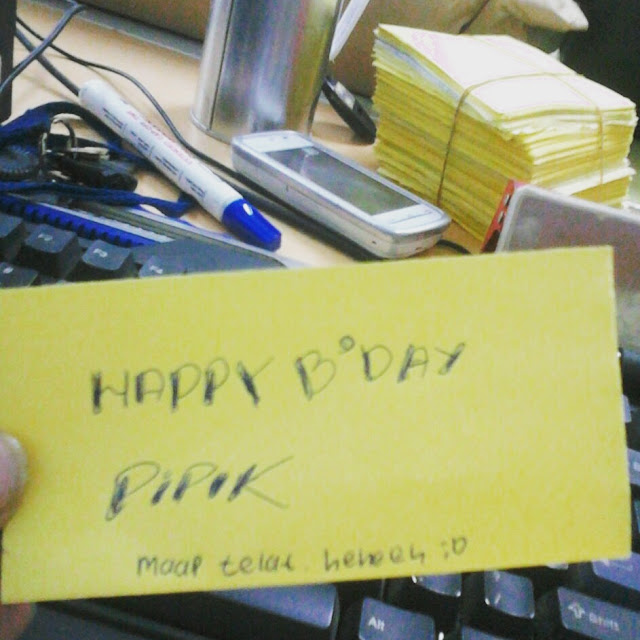 HAPPY B°DAY
PiPiK
maap telat. heheeh :D
Alt
Shift